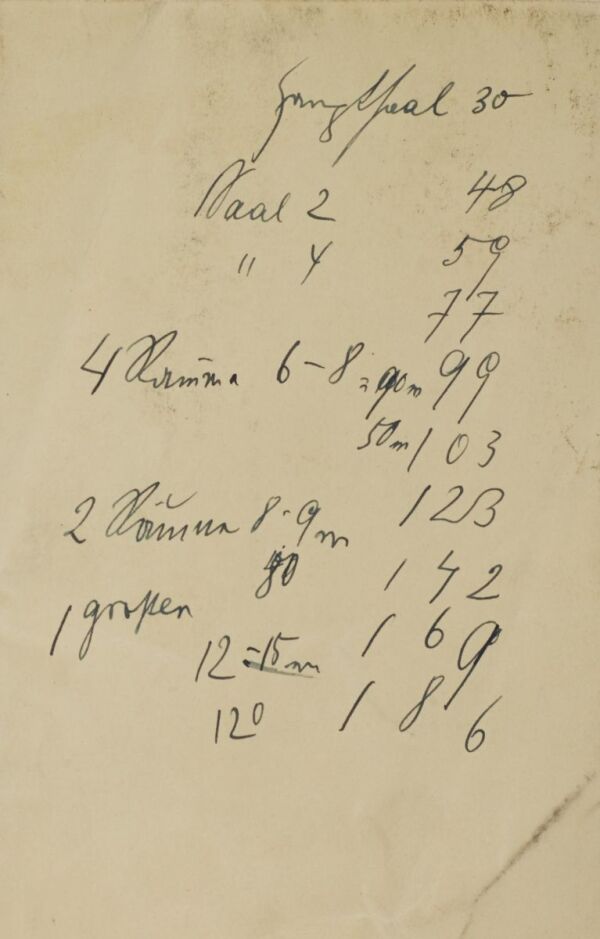 Hauptsaal 30
Saal 2 48
" 4 59
77
4 Räume 6-8 = 90 m 99
50 m 103
2 Räume 8-9 m 123
80 142
1 großen
12-15 m 169
120 186